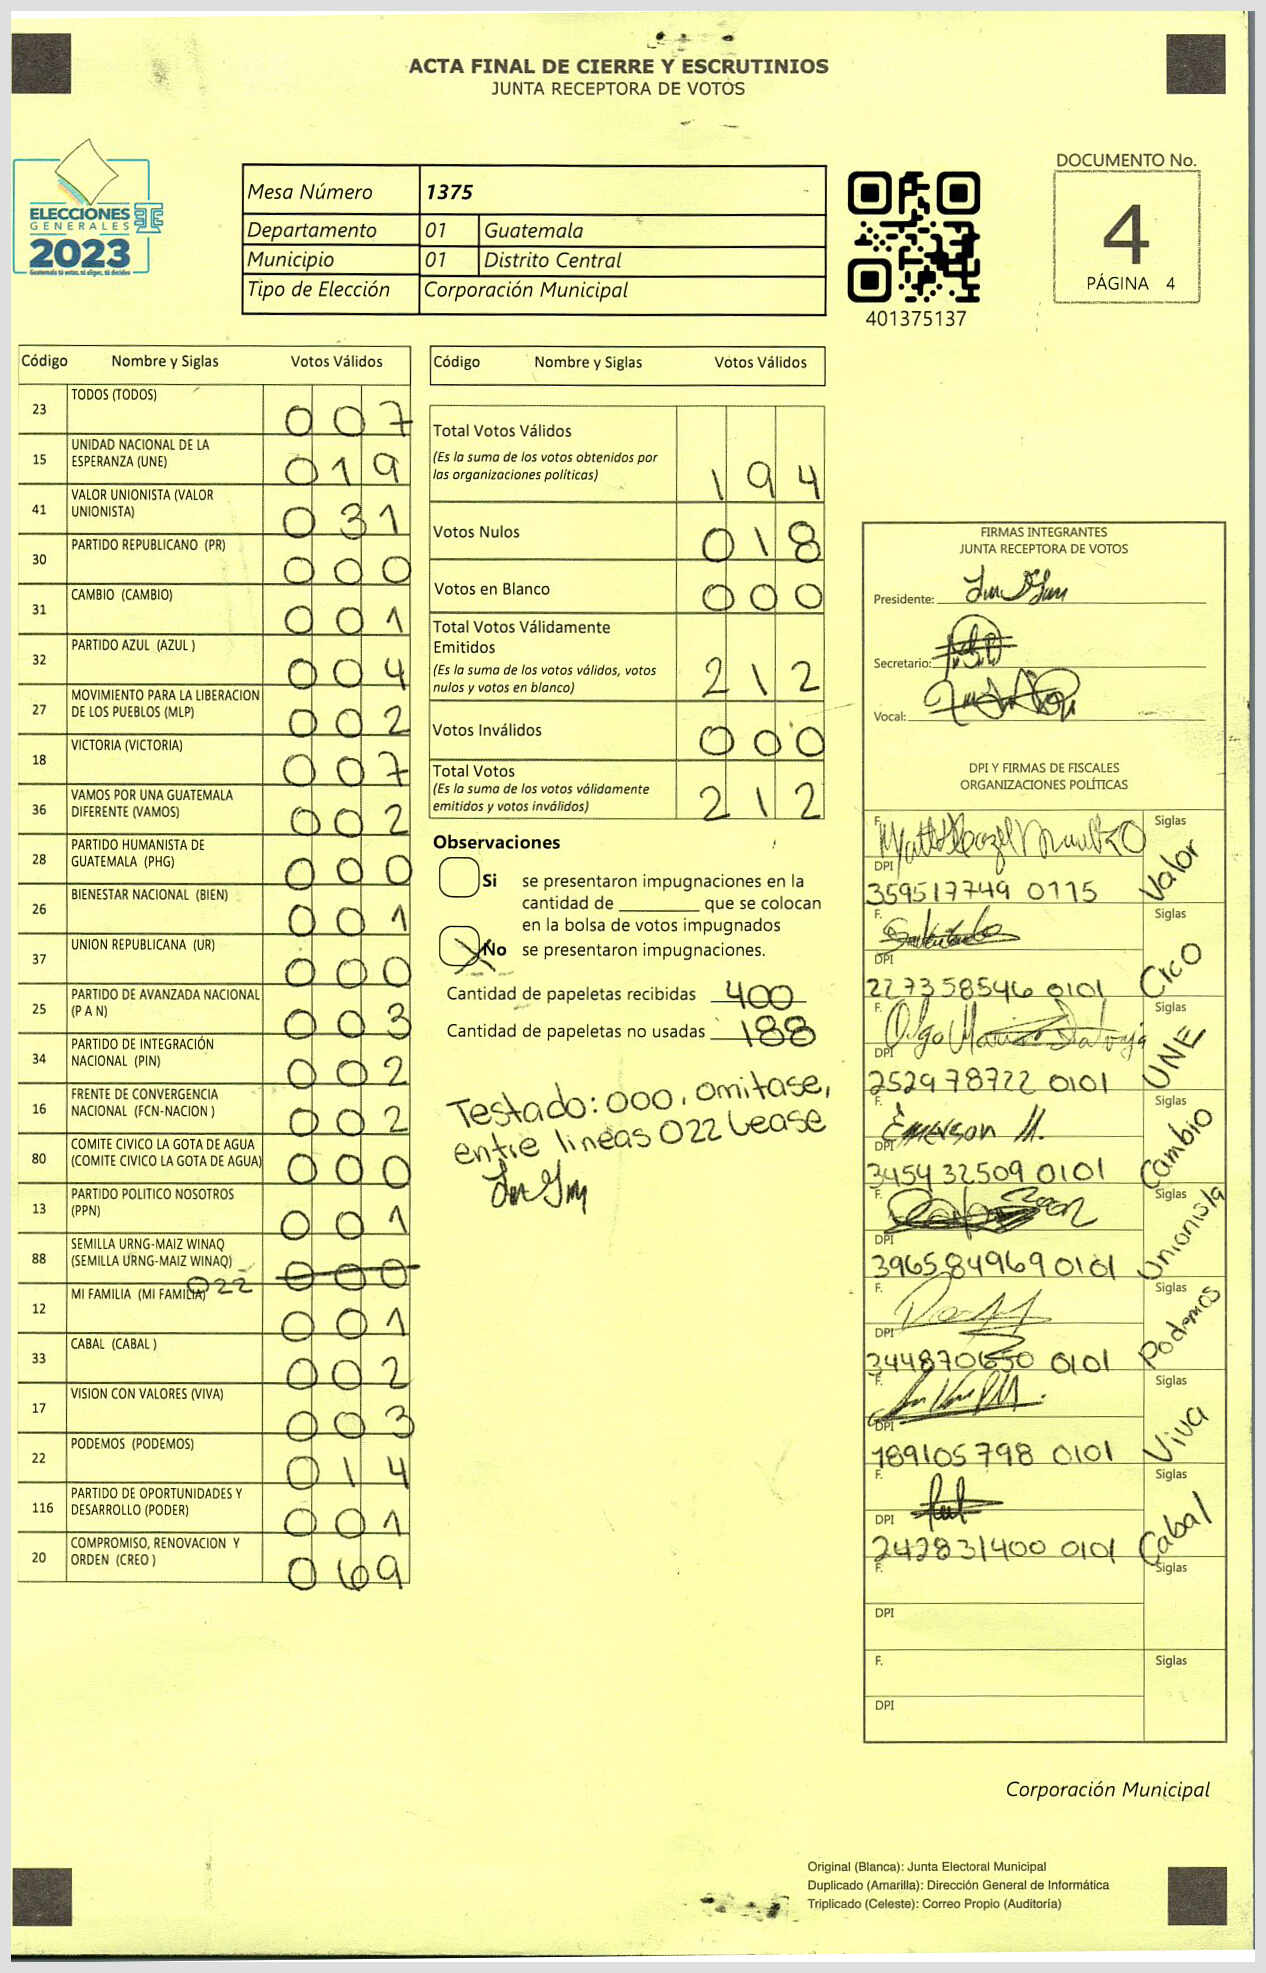 ACTA FINAL DE CIERRE Y ESCRUTINIOS
JUNTA RECEPTORA DE VOTOS
ELECCIONES
GENERALES
2023
Guatemala tú votas, tú eliges, tú decides
Mesa Número 1375
Departamento 01 Guatemala
Municipio 01 Distrito Central
Tipo de Elección Corporación Municipal
401375137
DOCUMENTO No.
4
PÁGINA 4
Código Nombre y Siglas Votos Válidos
23 TODOS (TODOS) 007
15 UNIDAD NACIONAL DE LA ESPERANZA (UNE) 019
41 VALOR UNIONISTA (VALOR UNIONISTA) 031
30 PARTIDO REPUBLICANO (PR) 000
31 CAMBIO (CAMBIO) 001
32 PARTIDO AZUL (AZUL ) 004
27 MOVIMIENTO PARA LA LIBERACION DE LOS PUEBLOS (MLP) 002
18 VICTORIA (VICTORIA) 007
36 VAMOS POR UNA GUATEMALA DIFERENTE (VAMOS) 002
28 PARTIDO HUMANISTA DE GUATEMALA (PHG) 000
26 BIENESTAR NACIONAL (BIEN) 001
37 UNION REPUBLICANA (UR) 000
25 PARTIDO DE AVANZADA NACIONAL (P A N) 003
34 PARTIDO DE INTEGRACIÓN NACIONAL (PIN) 002
16 FRENTE DE CONVERGENCIA NACIONAL (FCN-NACION ) 002
80 COMITE CIVICO LA GOTA DE AGUA (COMITE CIVICO LA GOTA DE AGUA) 000
13 PARTIDO POLITICO NOSOTROS (PPN) 001
88 SEMILLA URNG-MAIZ WINAQ (SEMILLA URNG-MAIZ WINAQ) 000
022
12 MI FAMILIA (MI FAMILIA) 001
33 CABAL (CABAL ) 002
17 VISION CON VALORES (VIVA) 003
22 PODEMOS (PODEMOS) 014
116 PARTIDO DE OPORTUNIDADES Y DESARROLLO (PODER) 001
20 COMPROMISO, RENOVACION Y ORDEN (CREO ) 069
Código Nombre y Siglas Votos Válidos
Total Votos Válidos
(Es la suma de los votos obtenidos por
las organizaciones políticas) 194
Votos Nulos 018
Votos en Blanco 000
Total Votos Válidamente
Emitidos
(Es la suma de los votos válidos, votos
nulos y votos en blanco) 212
Votos Inválidos 000
Total Votos
(Es la suma de los votos válidamente
emitidos y votos inválidos) 212
Observaciones
Si se presentaron impugnaciones en la
cantidad de ________ que se colocan
en la bolsa de votos impugnados
No se presentaron impugnaciones.
Cantidad de papeletas recibidas 400
Cantidad de papeletas no usadas 188
Testado: 000, omitase,
entre lineas 022 Lease
FIRMAS INTEGRANTES
JUNTA RECEPTORA DE VOTOS
Presidente:
Secretario:
Vocal:
DPI Y FIRMAS DE FISCALES
ORGANIZACIONES POLÍTICAS
F. Siglas
DPI Valor
359517749 0115
F. Siglas
DPI Cico
227358546 0101
F. Olga Siglas
DPI UNE
252978722 0101
F. Emerson M. Siglas
DPI Cambio
345432509 0101
F. Siglas
DPI Unionista
396584969 0101
F. Siglas
DPI Podemos
244870650 0101
F. Siglas
DPI Viva
189105798 0101
F. Siglas
DPI Cabal
242831400 0101
F. Siglas
DPI
F. Siglas
DPI
Corporación Municipal
Original (Blanca): Junta Electoral Municipal
Duplicado (Amarilla): Dirección General de Informática
Triplicado (Celeste): Correo Propio (Auditoría)